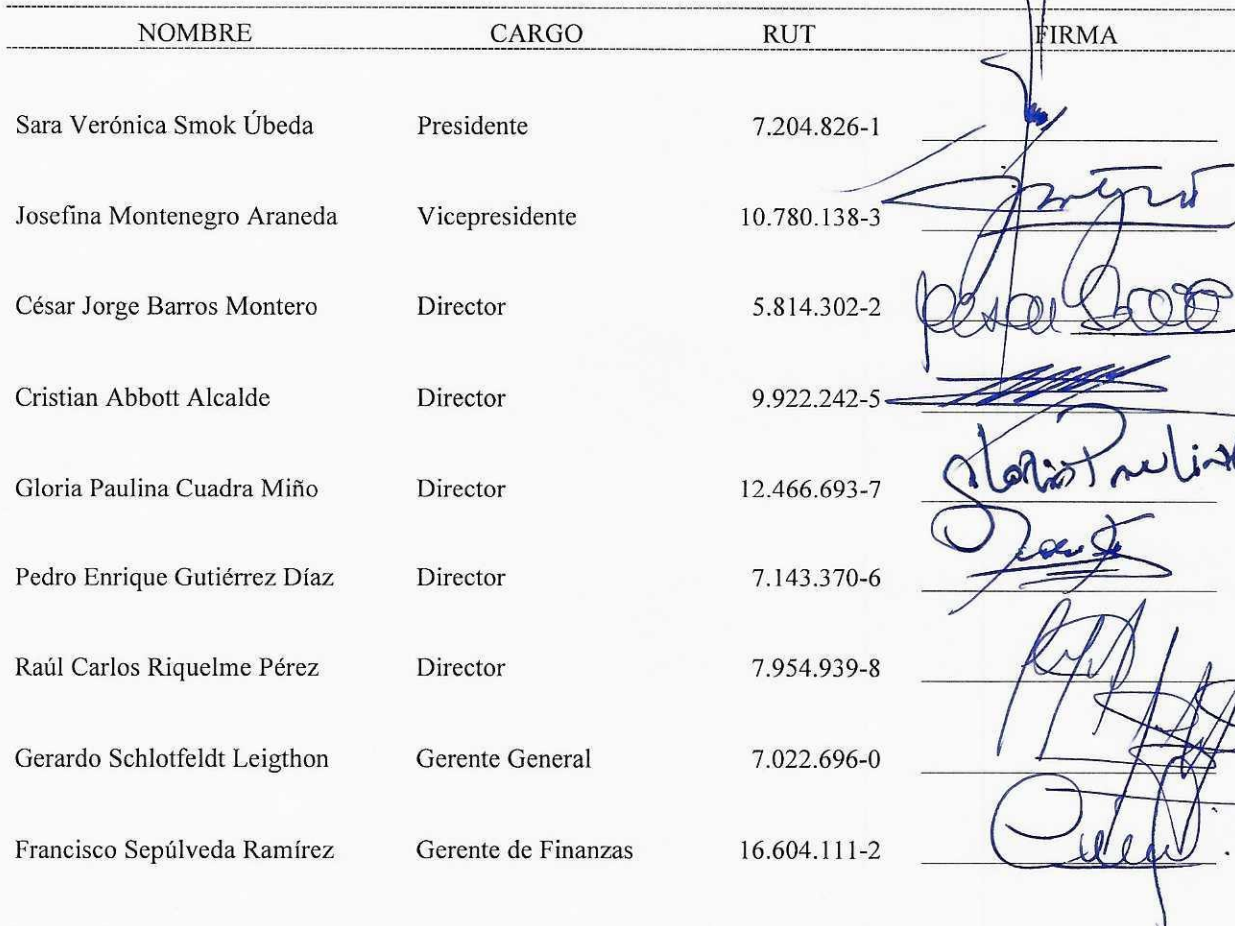 NOMBRE CARGO RUT FIRMA
Sara Verónica Smok Úbeda Presidente 7.204.826-1
Josefina Montenegro Araneda Vicepresidente 10.780.138-3
César Jorge Barros Montero Director 5.814.302-2
Cristian Abbott Alcalde Director 9.922.242-5
Gloria Paulina Cuadra Miño Director 12.466.693-7 Gloria Paulina
Pedro Enrique Gutiérrez Díaz Director 7.143.370-6
Raúl Carlos Riquelme Pérez Director 7.954.939-8
Gerardo Schlotfeldt Leigthon Gerente General 7.022.696-0
Francisco Sepúlveda Ramírez Gerente de Finanzas 16.604.111-2